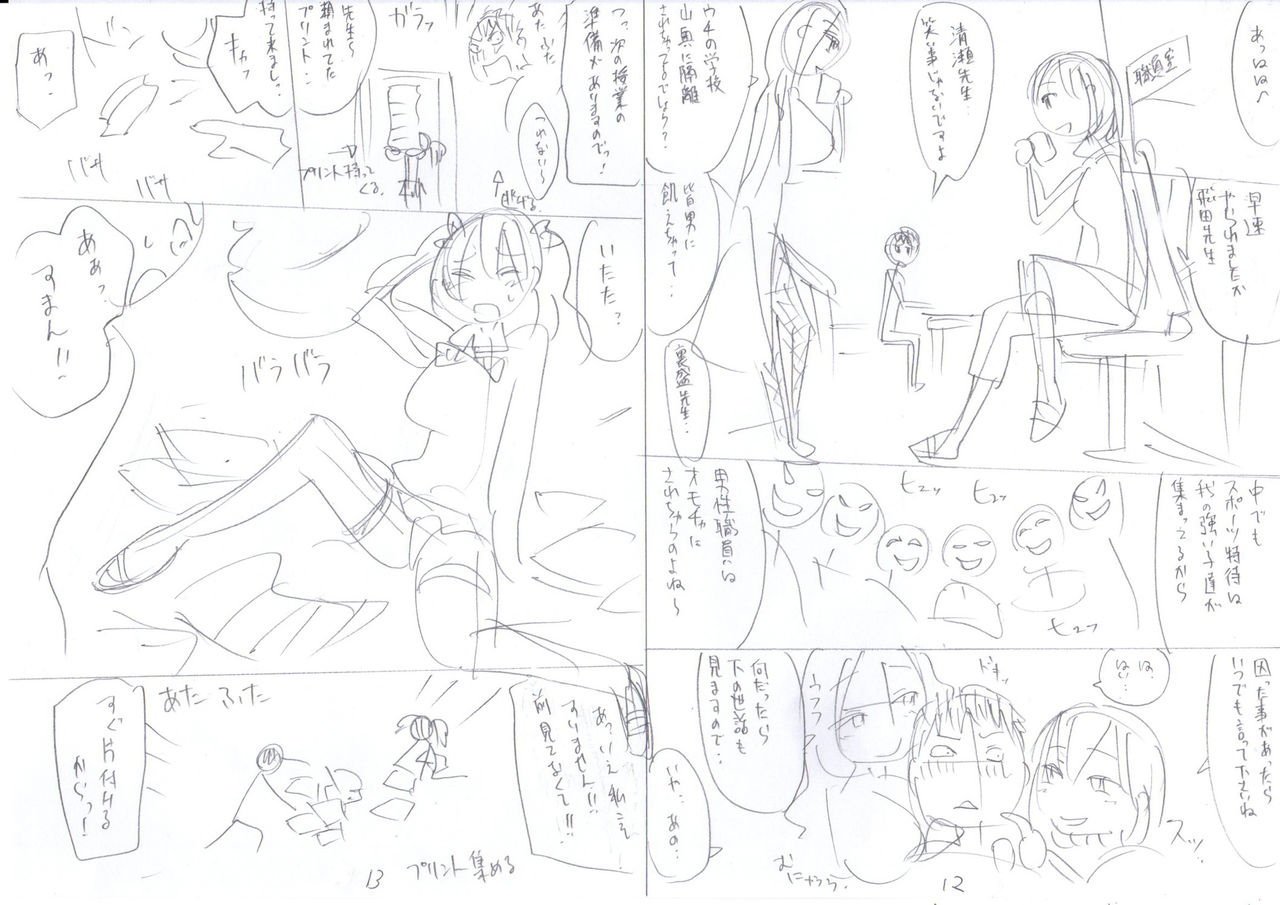 あっはは〜
職員室
早速
やられましたか
飛田先生
清瀬先生…
笑い事じゃないですよ
ウチの学校
山奥に隔離
されちゃってるでしょう?
皆男に
飢えちゃって…
裏盛先生…
中でも
スポーツ特待は
我の強い子達が
集まってるから
ヒユッ
ヒユッ
ヒユッ
男性職員は
オモチャに
されちゃうのよね〜
困った事があったら
いつでも言って下さいね
は、
はい…
スッ
ドキッ
ウフフ
何だったら
下の世話も
見ますので…
いや…あの…
むにゅうう
12
つっ、次の授業の
準備がありますのでっ!
つれない〜
あたふた
ガラッ
プリント持って
くる。
先生〜
頼まれてた
プリント…
持って来まし…っ
キャッ
あっ…
バサ
バサ
いたた…
バラバラ
ああっ
すまん!!
あっいえ私こそ
すいません!!
前見てなくて!!
あたふた
すぐ片付ける
からっ!
プリント集める
13